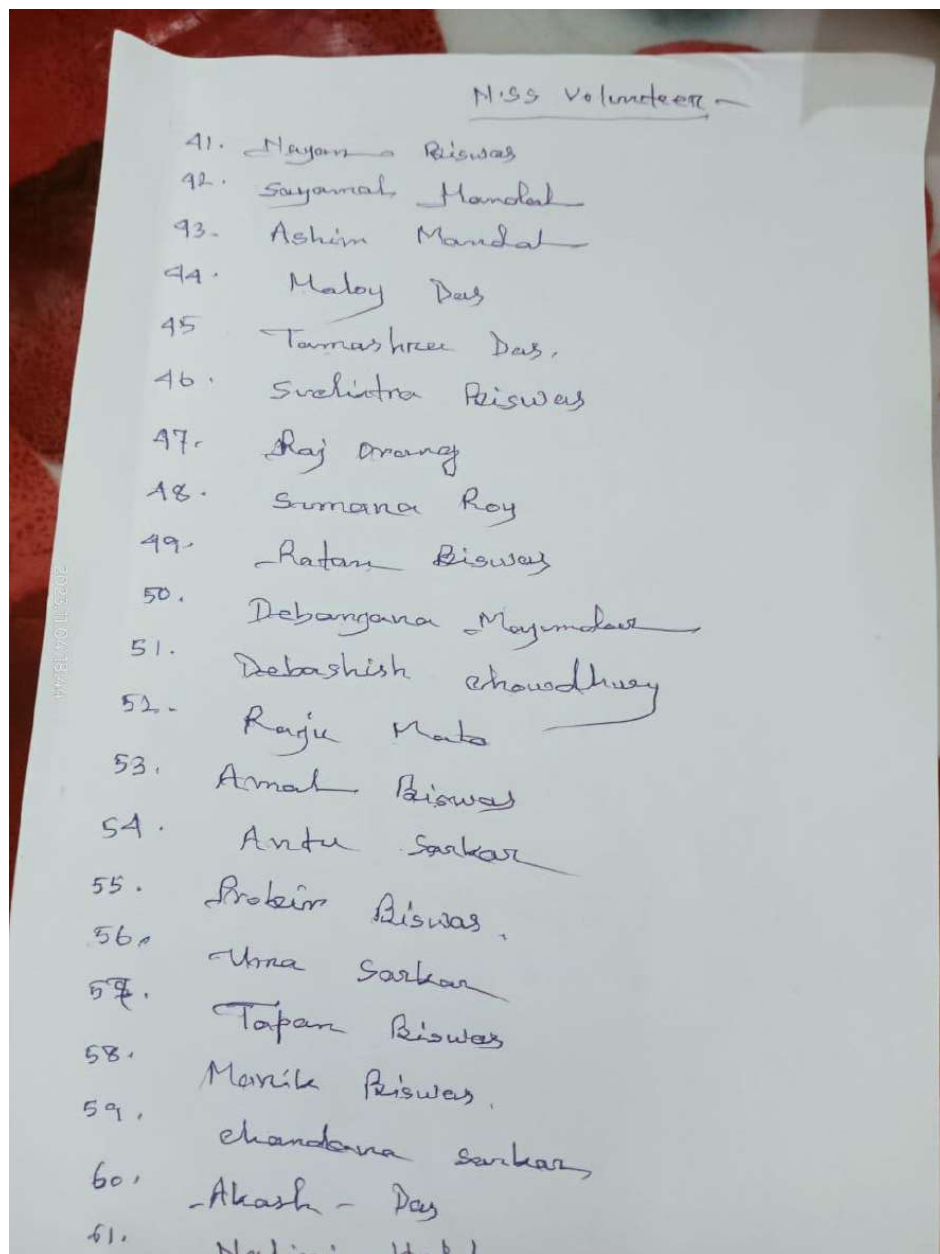 N.SS Volunteer -
41. Nayan Biswas
42. Sayamal Mandal
43. Ashim Mandal
44. Maloy Das
45 Tamashree Das.
46. Suchitra Biswas
47. Raj Orang
48. Sumana Roy
49. Ratan Biswas
50. Debangana Majumdar
51. Debashish Chowdhury
52. Raju Mato
53. Amal Biswas
54. Antu Sarkar
55. Probin Biswas.
56. Uma Sarkar
57. Tapan Biswas
58. Manik Biswas.
59. Chandana Sarkar
60. Akash - Das
61.